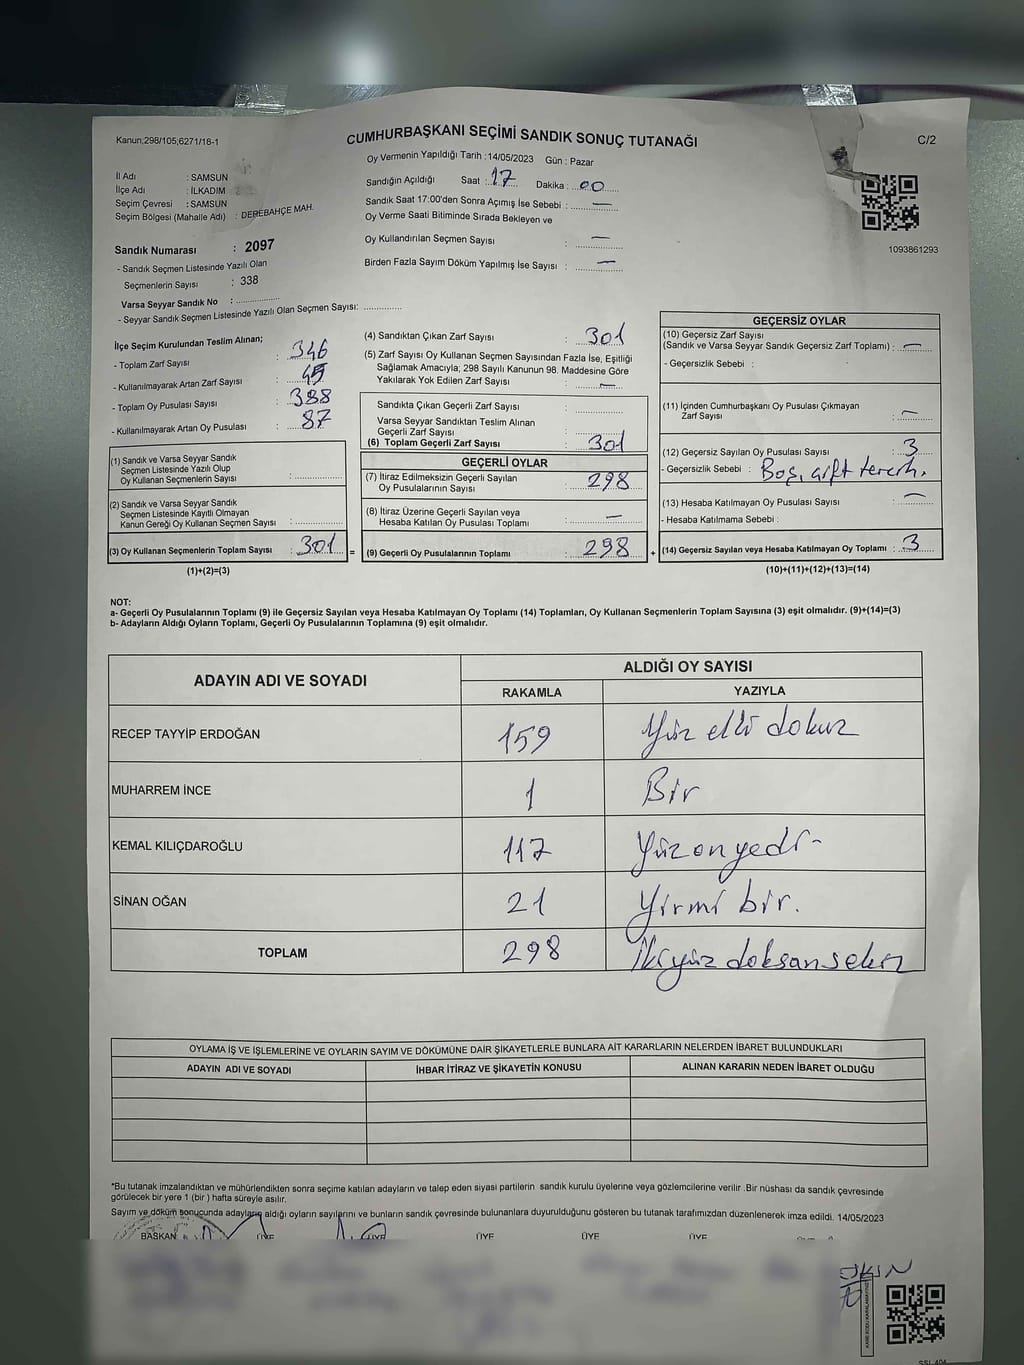 Kanun:298/105;6271/18-1
CUMHURBAŞKANI SEÇİMİ SANDIK SONUÇ TUTANAĞI
C/2
Oy Vermenin Yapıldığı Tarih :14/05/2023 Gün : Pazar
İl Adı : SAMSUN
İlçe Adı : İLKADIM
Seçim Çevresi : SAMSUN
Seçim Bölgesi (Mahalle Adı) : DEREBAHÇE MAH.
Sandığın Açıldığı Saat : 17 Dakika : 00
Sandık Saat 17:00'den Sonra Açımış İse Sebebi : —
Oy Verme Saati Bitiminde Sırada Bekleyen ve
Oy Kullandırılan Seçmen Sayısı : —
Birden Fazla Sayım Döküm Yapılmış İse Sayısı : —
1093861293
Sandık Numarası : 2097
- Sandık Seçmen Listesinde Yazılı Olan
Seçmenlerin Sayısı : 338
Varsa Seyyar Sandık No :
- Seyyar Sandık Seçmen Listesinde Yazılı Olan Seçmen Sayısı:
İlçe Seçim Kurulundan Teslim Alınan;
- Toplam Zarf Sayısı : 346
- Kullanılmayarak Artan Zarf Sayısı : 45
- Toplam Oy Pusulası Sayısı : 388
- Kullanılmayarak Artan Oy Pusulası : 87
(1) Sandık ve Varsa Seyyar Sandık
Seçmen Listesinde Yazılı Olup
Oy Kullanan Seçmenlerin Sayısı :
(2) Sandık ve Varsa Seyyar Sandık
Seçmen Listesinde Kayıtlı Olmayan
Kanun Gereği Oy Kullanan Seçmen Sayısı :
(3) Oy Kullanan Seçmenlerin Toplam Sayısı : 301 =
(1)+(2)=(3)
(4) Sandıktan Çıkan Zarf Sayısı : 301
(5) Zarf Sayısı Oy Kullanan Seçmen Sayısından Fazla İse, Eşitliği
Sağlamak Amacıyla; 298 Sayılı Kanunun 98. Maddesine Göre
Yakılarak Yok Edilen Zarf Sayısı : —
Sandıkta Çıkan Geçerli Zarf Sayısı :
Varsa Seyyar Sandıktan Teslim Alınan
Geçerli Zarf Sayısı :
(6) Toplam Geçerli Zarf Sayısı : 301
GEÇERLİ OYLAR
(7) İtiraz Edilmeksizin Geçerli Sayılan
Oy Pusulalarının Sayısı : 298
(8) İtiraz Üzerine Geçerli Sayılan veya
Hesaba Katılan Oy Pusulası Toplamı : —
(9) Geçerli Oy Pusulalarının Toplamı : 298 +
GEÇERSİZ OYLAR
(10) Geçersiz Zarf Sayısı
(Sandık ve Varsa Seyyar Sandık Geçersiz Zarf Toplamı) : —
- Geçersizlik Sebebi :
(11) İçinden Cumhurbaşkanı Oy Pusulası Çıkmayan
Zarf Sayısı : —
(12) Geçersiz Sayılan Oy Pusulası Sayısı : 3
- Geçersizlik Sebebi : Boş, çift tercih.
(13) Hesaba Katılmayan Oy Pusulası Sayısı : —
- Hesaba Katılmama Sebebi :
(14) Geçersiz Sayılan veya Hesaba Katılmayan Oy Toplamı : 3
(10)+(11)+(12)+(13)=(14)
NOT:
a- Geçerli Oy Pusulalarının Toplamı (9) ile Geçersiz Sayılan veya Hesaba Katılmayan Oy Toplamı (14) Toplamları, Oy Kullanan Seçmenlerin Toplam Sayısına (3) eşit olmalıdır. (9)+(14)=(3)
b- Adayların Aldığı Oyların Toplamı, Geçerli Oy Pusulalarının Toplamına (9) eşit olmalıdır.
ADAYIN ADI VE SOYADI
ALDIĞI OY SAYISI
RAKAMLA YAZIYLA
RECEP TAYYİP ERDOĞAN 159 Yüz elli dokuz
MUHARREM İNCE 1 Bir
KEMAL KILIÇDAROĞLU 117 Yüzonyedi-
SİNAN OĞAN 21 Yirmi bir.
TOPLAM 298 İkiyüz doksansekiz
OYLAMA İŞ VE İŞLEMLERİNE VE OYLARIN SAYIM VE DÖKÜMÜNE DAİR ŞİKAYETLERLE BUNLARA AİT KARARLARIN NELERDEN İBARET BULUNDUKLARI
ADAYIN ADI VE SOYADI İHBAR İTİRAZ VE ŞİKAYETİN KONUSU ALINAN KARARIN NEDEN İBARET OLDUĞU
*Bu tutanak imzalandıktan ve mühürlendikten sonra seçime katılan adayların ve talep eden siyasi partilerin sandık kurulu üyelerine veya gözlemcilerine verilir .Bir nüshası da sandık çevresinde
görülecek bir yere 1 (bir ) hafta süreyle asılır.
Sayım ve döküm sonucunda adayların aldığı oyların sayılarını ve bunların sandık çevresinde bulunanlara duyurulduğunu gösteren bu tutanak tarafımızdan düzenlenerek imza edildi. 14/05/2023
BAŞKAN ÜYE ÜYE ÜYE ÜYE ÜYE